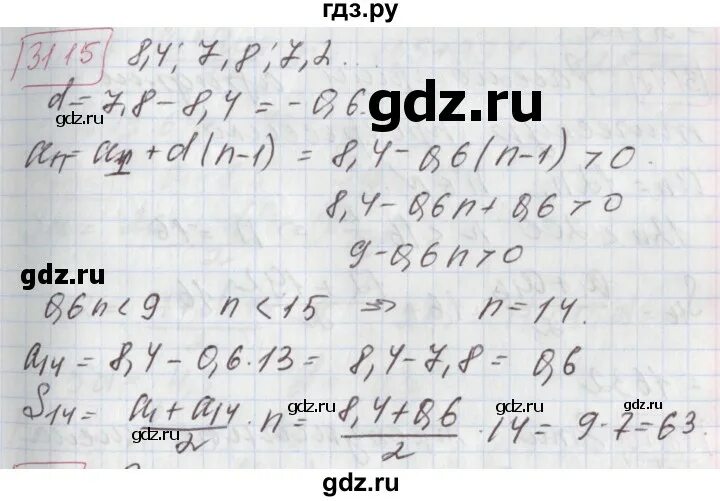 гдз.ру
3115 8,4; 7,8; 7,2...
d = 7,8 - 8,4 = -0,6.
gdz.ru
gdz.ru
aₙ = a₁ + d(n-1) = 8,4 - 0,6(n-1) > 0.
8,4 - 0,6n + 0,6 > 0
gdz.ru
9 - 0,6n > 0
gdz.ru
0,6n < 9 n < 15 ⇒ n = 14.
a₁₄ = 8,4 - 0,6·13 = 8,4 - 7,8 = 0,6
gdz.ru
gdz.ru
gdz.ru
S₁₄ = (a₁ + a₁₄)/2 · n = (8,4 + 0,6)/2 · 14 = 9·7 = 63.
gdz.ru